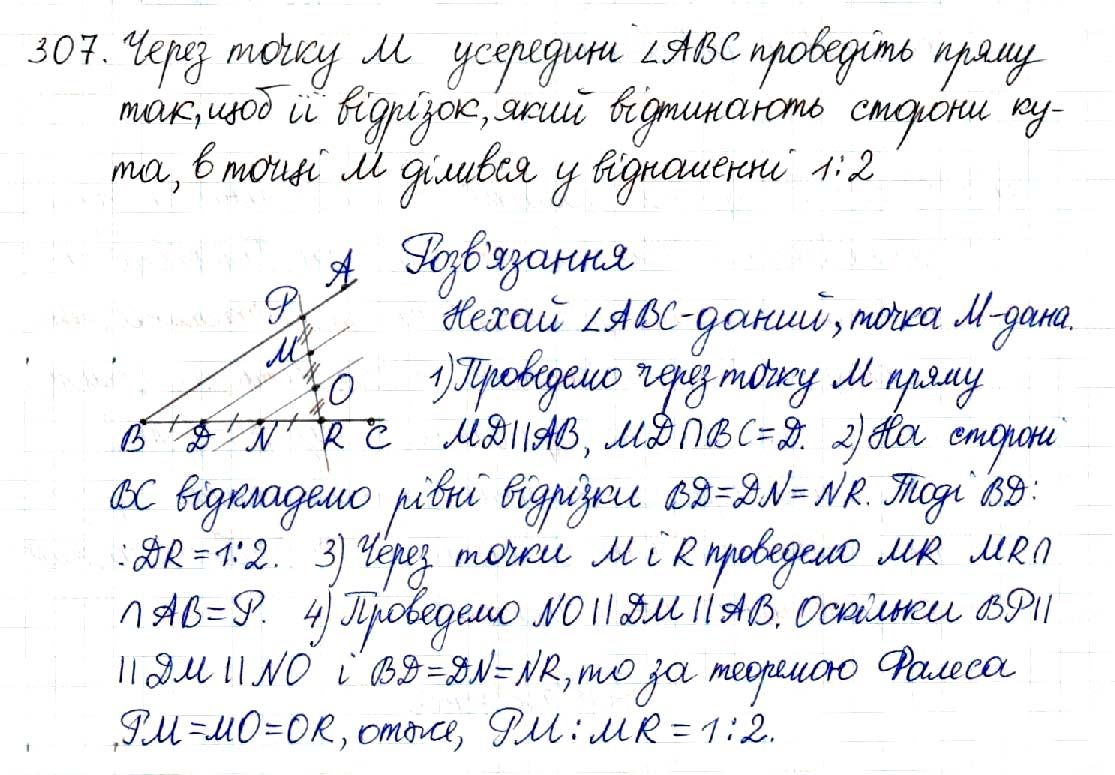 307. Через точку М усередині ∠ABC проведіть пряму
так, щоб її відрізок, який відтинають сторони ку-
та, в точці М ділився у відношенні 1:2
Розв'язання
A
P
M
O
B D N R C
Нехай ∠ABC-даний, точка М-дана.
1) Проведемо через точку М пряму
MD||AB, MD∩BC=D. 2) На стороні
BC відкладемо рівні відрізки BD=DN=NR. Тоді BD:
:DR=1:2. 3) Через точки М і R проведемо MR MR∩
∩AB=P. 4) Проведемо NO||DM||AB. Оскільки BP||
||DM||NO і BD=DN=NR, то за теоремою Фалеса
PM=MO=OR, отже, PM:MR=1:2.